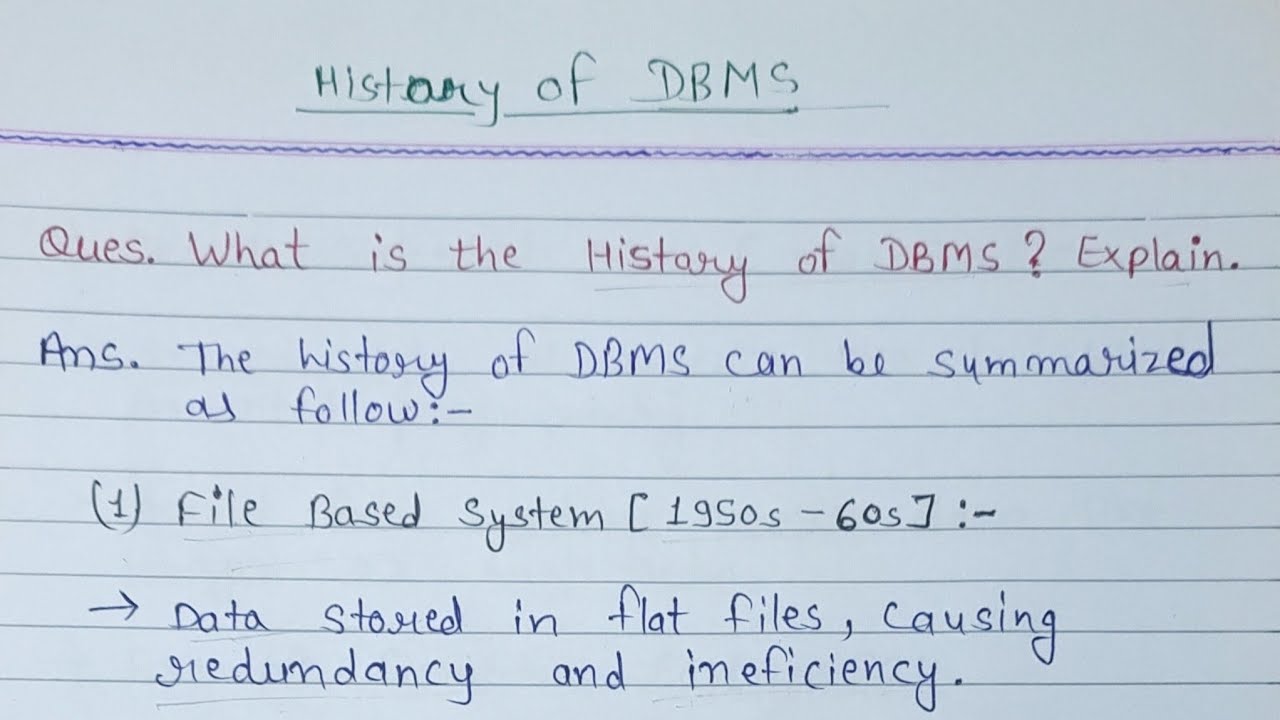 History of DBMS
Ques. What is the History of DBMS? Explain.
Ans. The history of DBMS can be summarized
as follow:-
(1) File Based System [1950s - 60s] :-
→ Data stored in flat files, causing
redundancy and ineficiency.